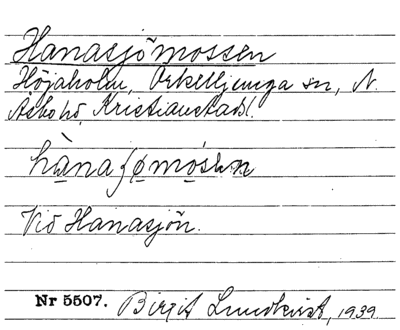 Hanasjömossen
Höjaholm, Örkelljunga sn, N.
Åsbo hd, Kristianstads l.
Vid Hanasjön.
Nr 5507. Birgit Lundkvist, 1939.